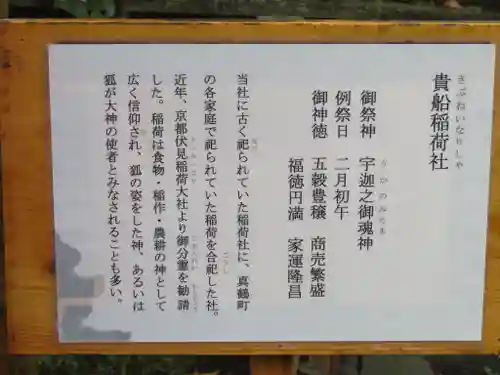 貴船稲荷社
きぶねいなりしゃ
御祭神 宇迦之御魂神
うかのみたま
例祭日 二月初午
御神徳 五穀豊穣 商売繁盛
福徳円満 家運隆昌
当社に古く祀られていた稲荷社に、真鶴町
の各家庭で祀られていた稲荷を合祀した社。
近年、京都伏見稲荷大社より御分霊を勧請
した。稲荷は食物・稲作・農耕の神として
広く信仰され、狐の姿をした神、あるいは
狐が大神の使者とみなされることも多い。